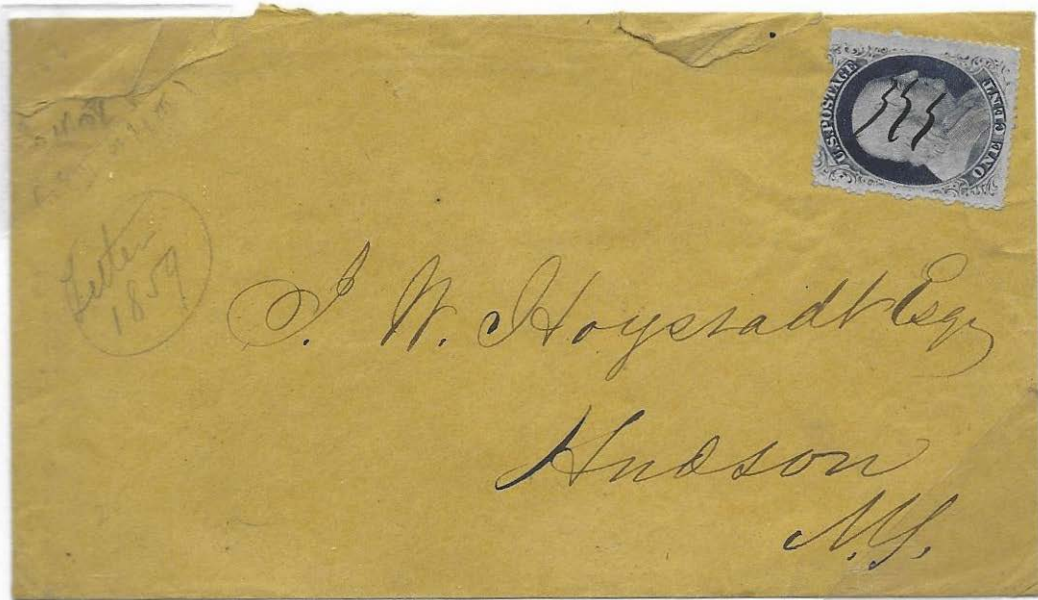 U.S. POSTAGE
ONE CENT
Letter
1859
J. W. Hoysradt Esqr
Hudson
N.Y.